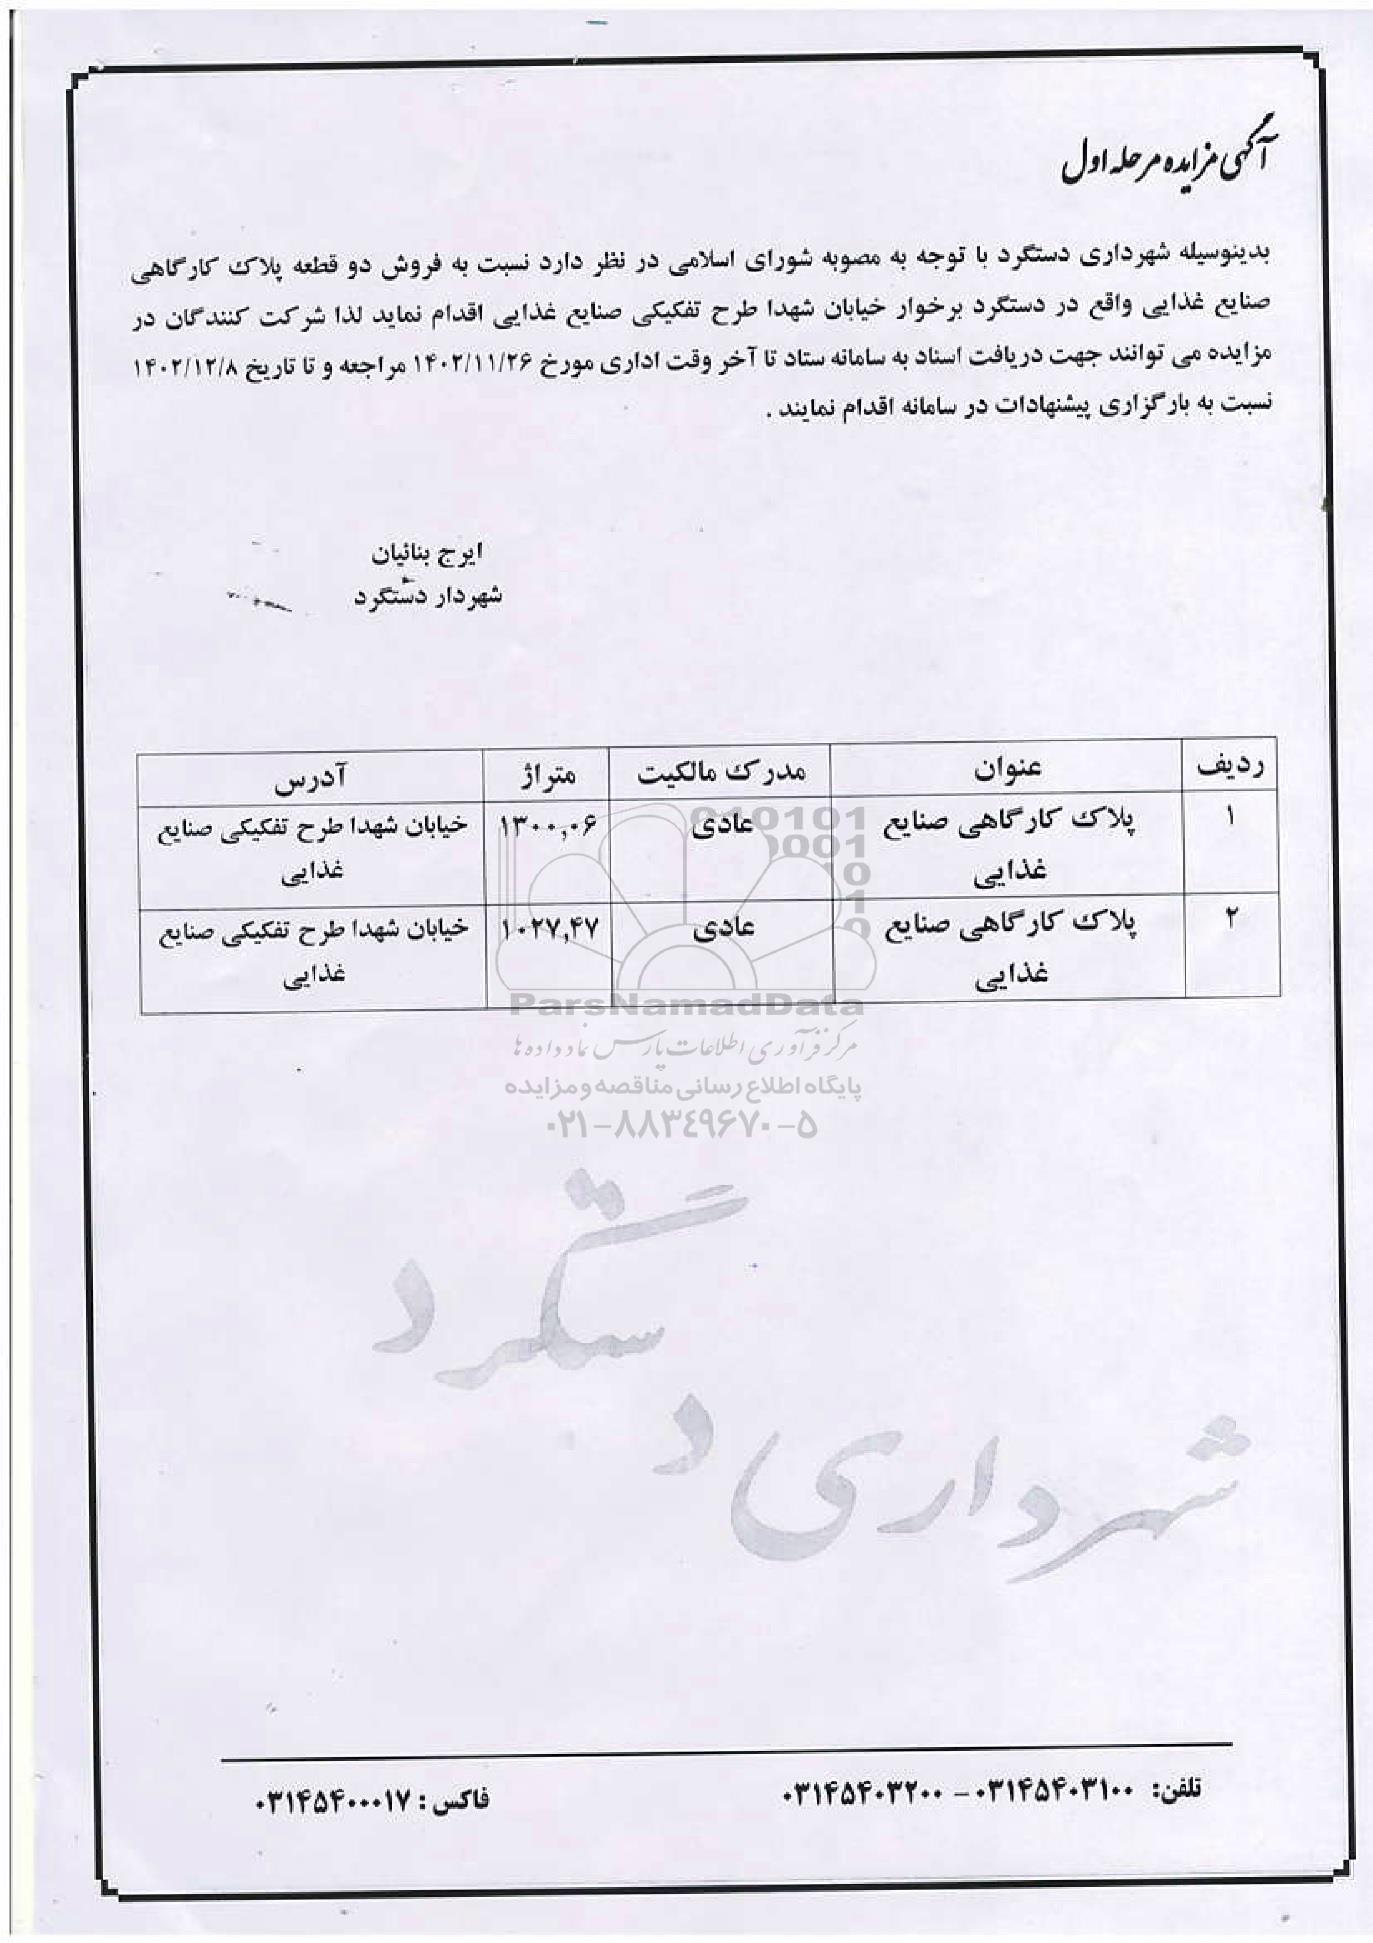 آگهی مزایده مرحله اول
بدینوسیله شهرداری دستگرد با توجه به مصوبه شورای اسلامی در نظر دارد نسبت به فروش دو قطعه پلاک کارگاهی
صنایع غذایی واقع در دستگرد برخوار خیابان شهدا طرح تفکیکی صنایع غذایی اقدام نماید لذا شرکت کنندگان در
مزایده می توانند جهت دریافت اسناد به سامانه ستاد تا آخر وقت اداری مورخ ۱۴۰۲/۱۱/۲۶ مراجعه و تا تاریخ ۱۴۰۲/۱۲/۸
نسبت به بارگزاری پیشنهادات در سامانه اقدام نمایند .
ایرج بنائیان
شهردار دستگرد
ردیف عنوان مدرک مالکیت متراژ آدرس
۱ پلاک کارگاهی صنایع عادی ۱۳۰۰,۰۶ خیابان شهدا طرح تفکیکی صنایع
غذایی غذایی
۲ پلاک کارگاهی صنایع عادی ۱۰۲۷,۴۷ خیابان شهدا طرح تفکیکی صنایع
غذایی غذایی
010101
0001
0
1
0
ParsNamadData
مرکز فرآوری اطلاعات پارس نماد داده ها
پایگاه اطلاع رسانی مناقصه و مزایده
۰۲۱-۸۸۳۴۹۶۷۰-۵
شهرداری دستگرد
تلفن: ۰۳۱۴۵۴۰۳۱۰۰ – ۰۳۱۴۵۴۰۳۲۰۰
فاکس : ۰۳۱۴۵۴۰۰۰۱۷